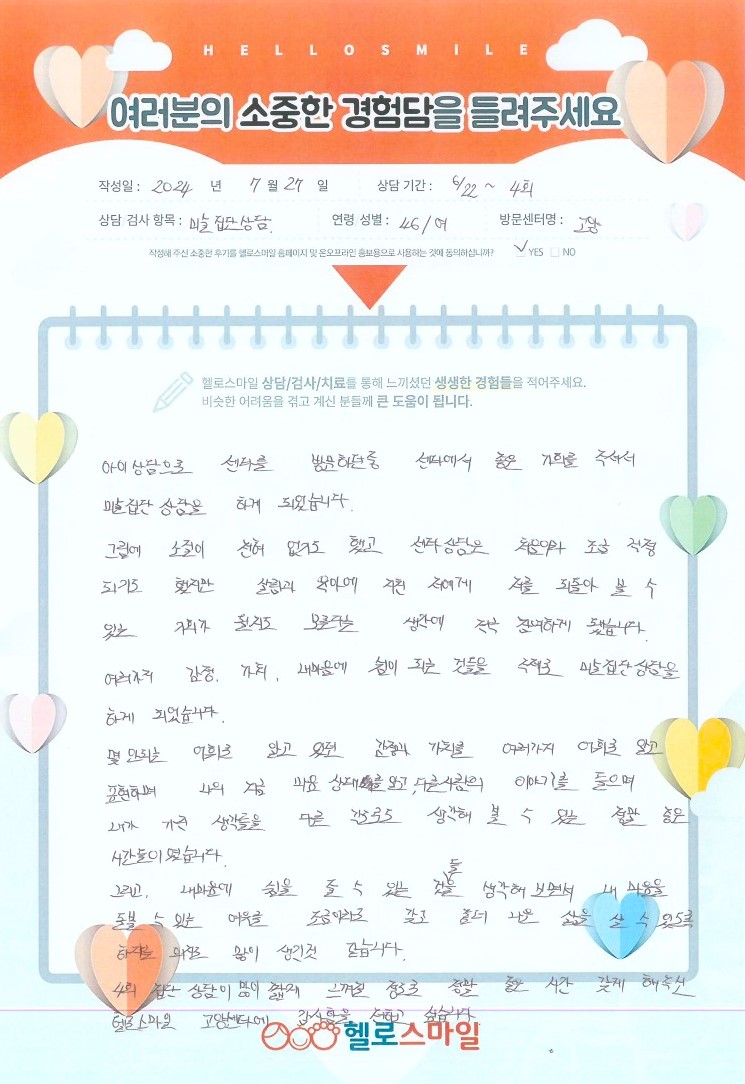 HELLOSMILE
여러분의 소중한 경험담을 들려주세요
작성일 : 2024 년 7 월 27 일 상담 기간 : 6/22 ~ 4회
상담 검사 항목 : 미술집단상담. 연령 성별 : 46/여 방문센터명 : 고양
작성해 주신 소중한 후기를 헬로스마일 홈페이지 및 온오프라인 홍보용으로 사용하는 것에 동의하십니까? YES NO
헬로스마일 상담/검사/치료를 통해 느끼셨던 생생한 경험들을 적어주세요.
비슷한 어려움을 겪고 계신 분들께 큰 도움이 됩니다.
아이상담으로 센터를 방문하던중 센터에서 좋은 기회를 주셔서
미술집단 상담을 하게 되었습니다.
그림에 소질이 전혀 없기도 했고 센터상담은 처음이라 조금 걱정
되기도 했지만 살림과 육아에 지친 저에게 저를 되돌아 볼 수
있는 기회가 될지도 모른다는 생각에 적극 참여하게 됐습니다.
여러가지 감정, 가치, 내마음에 힘이 되는 것들을 주제로 미술집단상담을
하게 되었습니다.
몇 안되는 어휘로 알고 있던 감정과 가치를 여러가지 어휘로 알고
표현하며 나의 지금 마음 상태를 알고, 다른사람의 이야기를 들으며
내가 가진 생각들을 다른 각도로도 생각해 볼 수 있는 정말 좋은
시간들이었습니다.
그리고, 내마음에 쉼을 줄 수 있는 것들을 생각해 보면서 내 마음을
돌볼 수 있는 여유를 조금이라도 갖고 좀더 나은 삶을 살 수 있도록
하는 힘이 생긴것 같습니다.
4회 집단 상담이 많이 짧게 느껴질 정도로 정말 좋은 시간 갖게 해주신
헬로스마일 고양센터에 감사함을 전하고 싶습니다.
헬로스마일